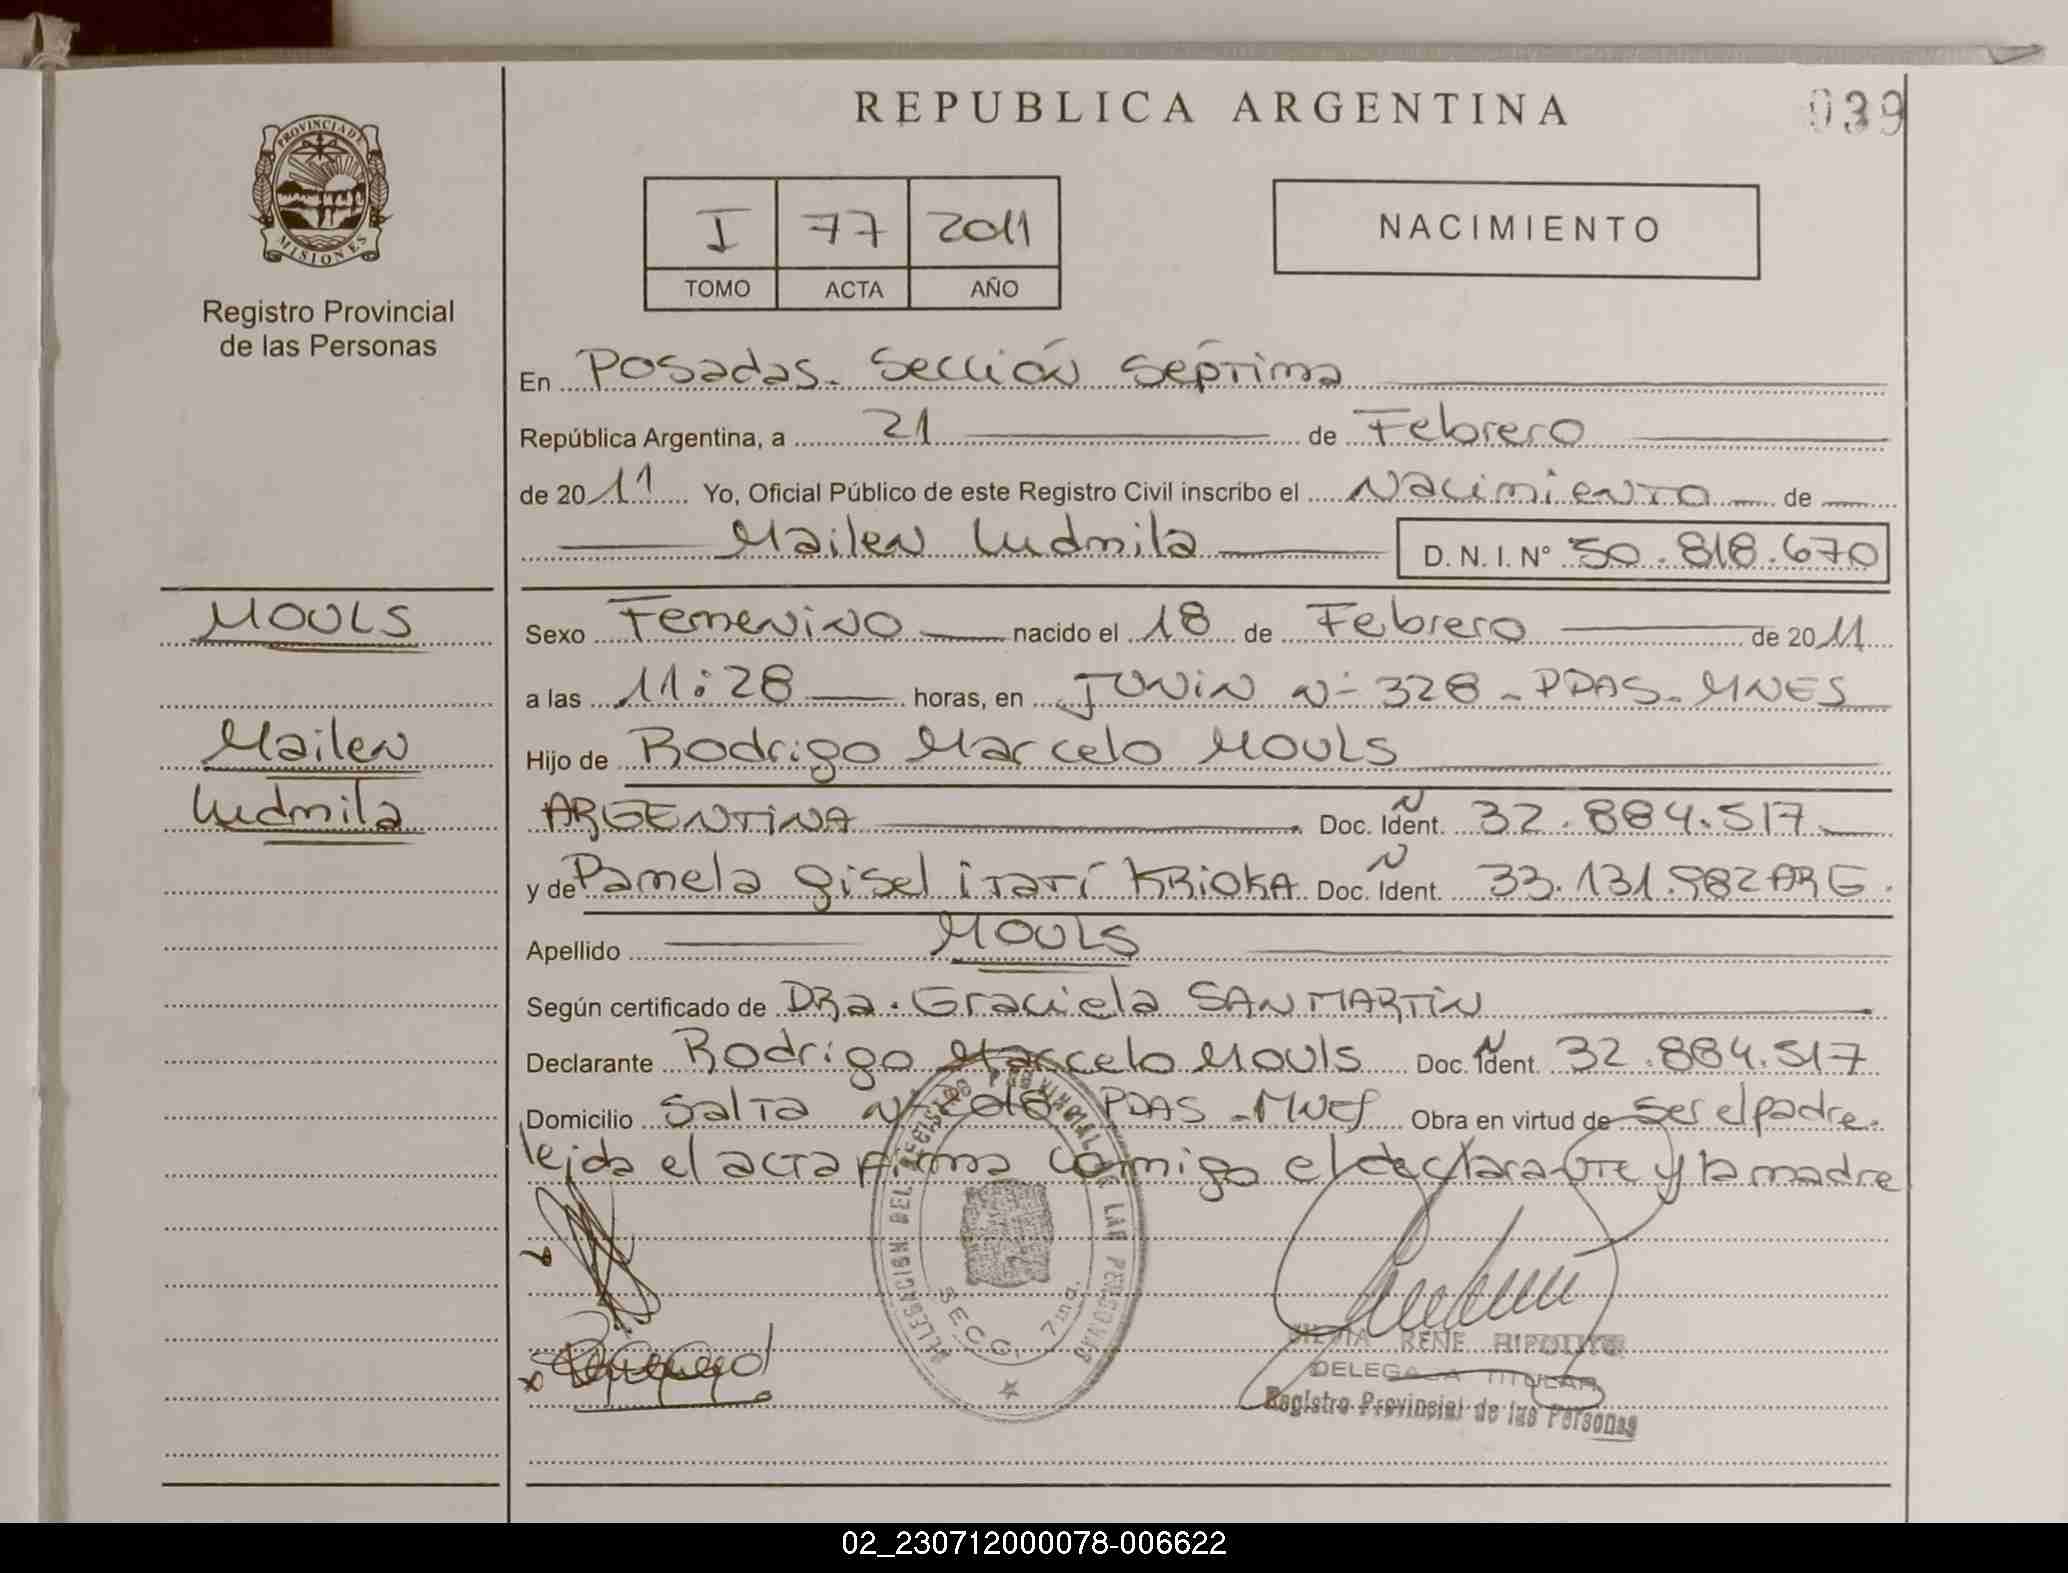 REPUBLICA ARGENTINA
039
PROVINCIA DE
MISIONES
Registro Provincial
de las Personas
I 77 2011
TOMO ACTA AÑO
NACIMIENTO
En Posadas. Sección Séptima
República Argentina, a 21 de Febrero
de 2011 Yo, Oficial Público de este Registro Civil inscribo el Nacimiento de
Mailen Ludmila D. N. I. N° 50.818.670
MOULS
Mailen
Ludmila
Sexo Femenino nacido el 18 de Febrero de 2011
a las 11:28 horas, en JUNIN N° 328 - PDAS - MNES
Hijo de Rodrigo Marcelo MOULS
ARGENTINA Doc. Ident. N 32.884.517
y de Pamela Gisel Itatí KRIOKA Doc. Ident. N 33.131.982 ARG.
Apellido MOULS
Según certificado de DRa. Graciela SANMARTIN
Declarante Rodrigo Marcelo Mouls Doc. Ident. N 32.884.517
Domicilio Salta PDAS - MNES Obra en virtud de ser el padre.
leida el acta firma comigo el declarante y la madre
DELEGACION DEL REGISTRO PROVINCIAL DE LAS PERSONAS
SECC. 7ma.
SILVIA RENE HIPOLITO
DELEGADA TITULAR
Registro Provincial de las Personas
02_230712000078-006622